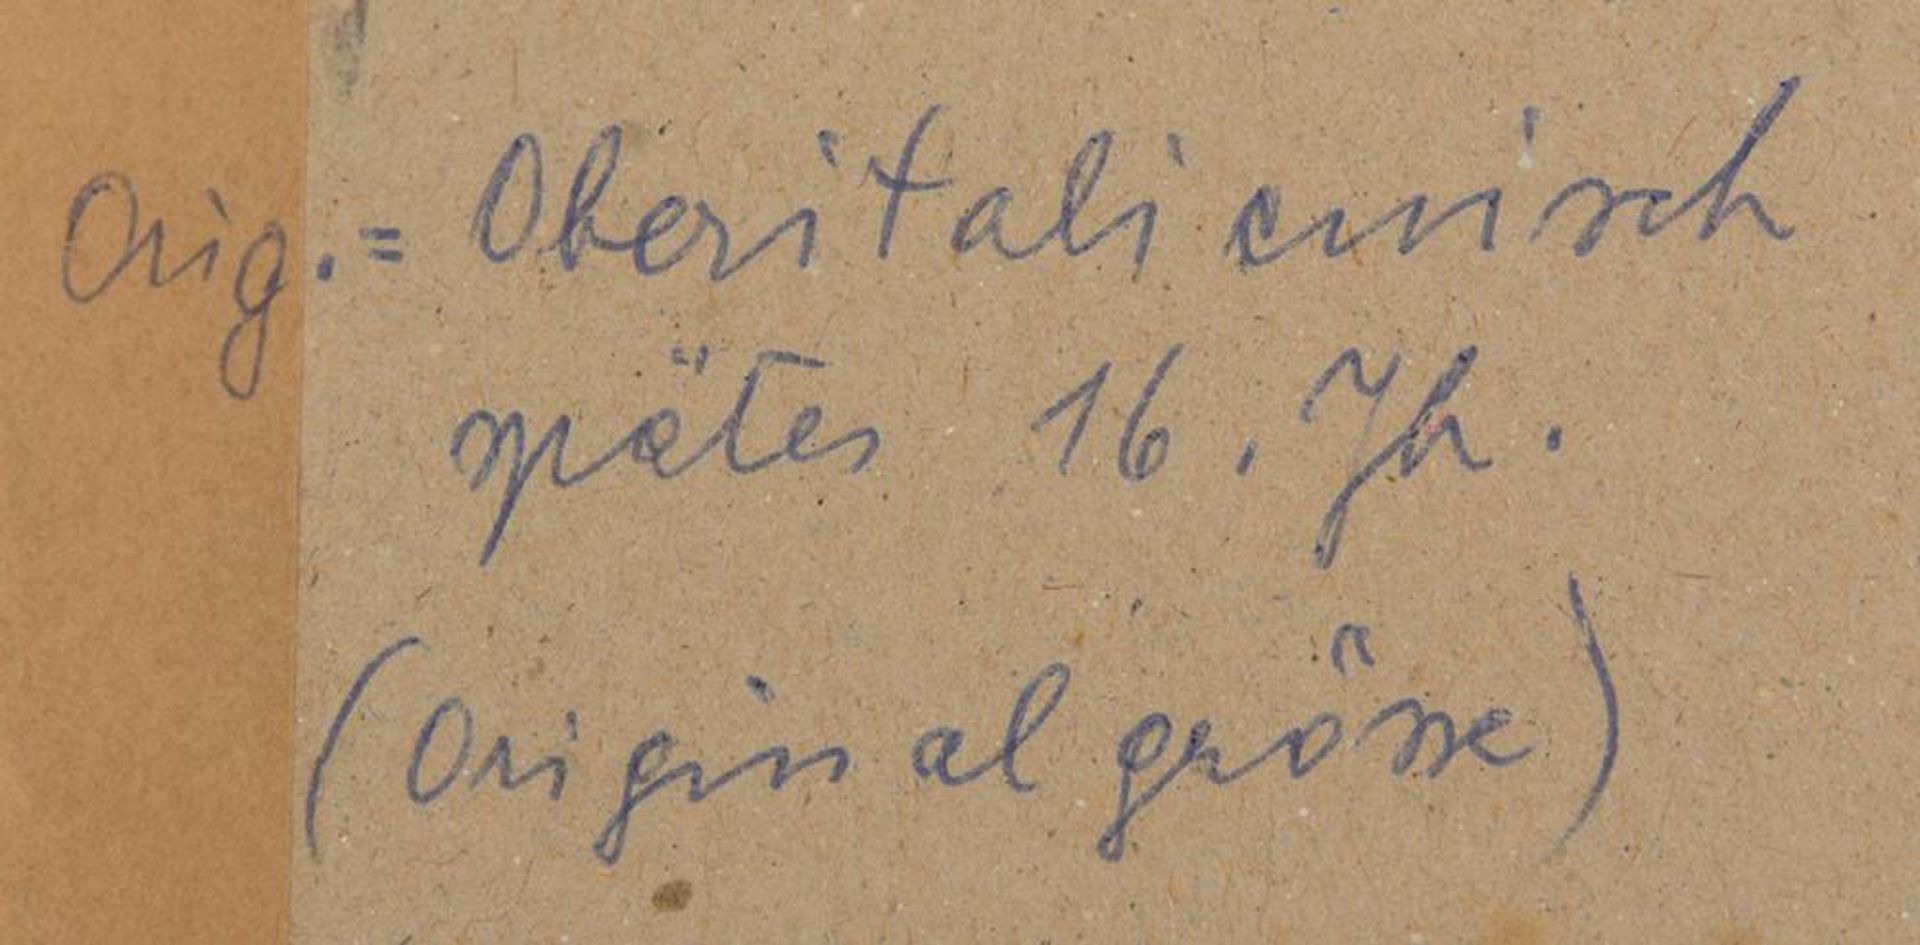 Orig. = Oberitalienisch
spätes 16. Jh.
(Originalgrösse)